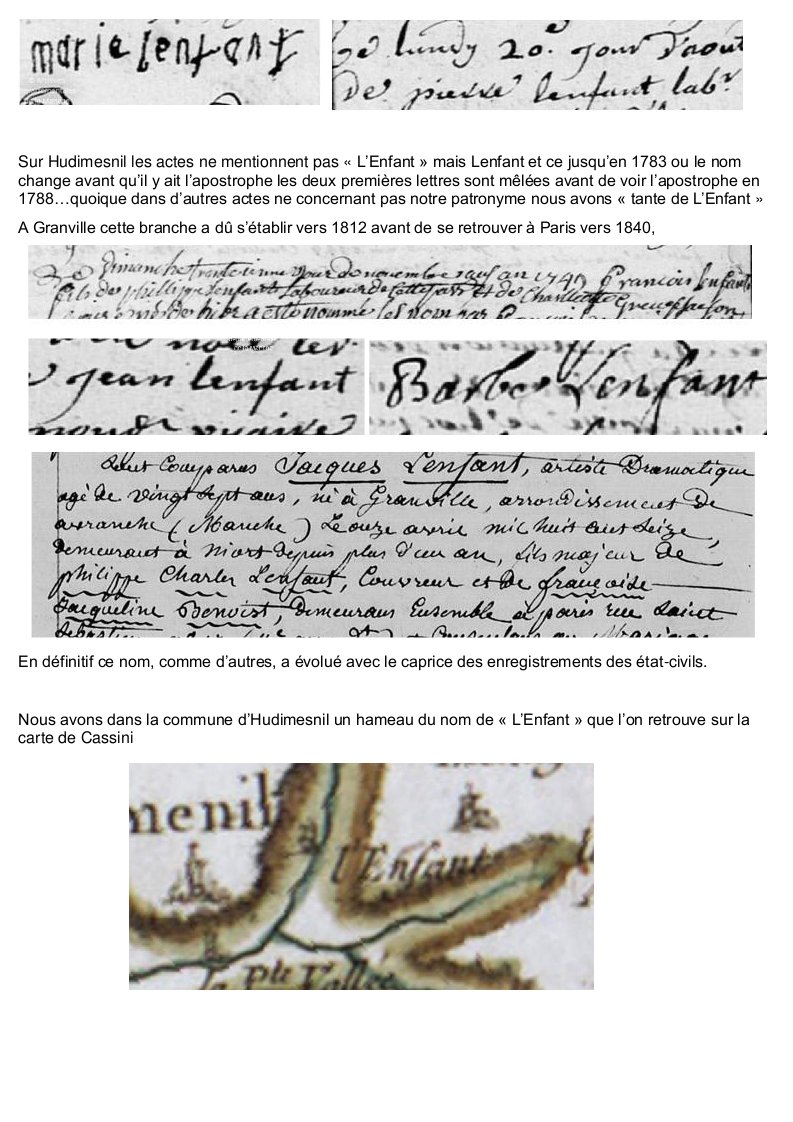 marie lenfant
Le lundy 20e jour d'aout
De pierre lenfant labr
Sur Hudimesnil les actes ne mentionnent pas « L’Enfant » mais Lenfant et ce jusqu’en 1783 ou le nom
change avant qu’il y ait l’apostrophe les deux premières lettres sont mêlées avant de voir l’apostrophe en
1788…quoique dans d’autres actes ne concernant pas notre patronyme nous avons « tante de L’Enfant »
A Granville cette branche a dû s’établir vers 1812 avant de se retrouver à Paris vers 1840,
Le Dimanche jour de novembre an 1749 Francois lenfant
fils de phillippe lenfant Laboureur de cette et de Charllotte
nommé
jean lenfant
vicaire
Barbe Lenfant
Comparus Jacques Lenfant, artiste Dramatique
agé de vingt sept ans, né à Granville, arrondissement De
avranche (Manche) Le onze avril mil huit cent seize,
demeurant à niort depuis plus d'un an, fils majeur De
philippe Charles Lenfant, Couvreur et de françoise
Jacqueline Benoist, Demeurans Ensemble à paris rue Saint
En définitif ce nom, comme d’autres, a évolué avec le caprice des enregistrements des état-civils.
Nous avons dans la commune d’Hudimesnil un hameau du nom de « L’Enfant » que l’on retrouve sur la
carte de Cassini
menil
l'Enfant
la Pte Vallée